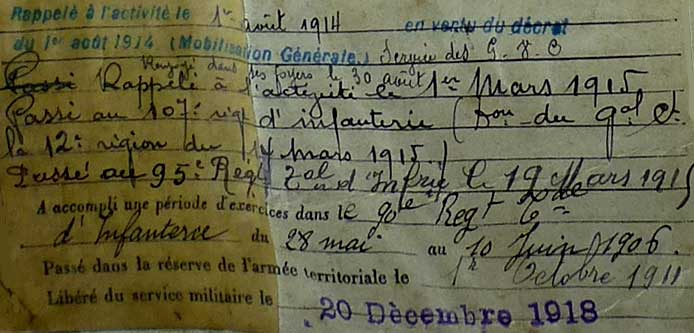 Rappelé à l'activité le 1er août 1914 en vertu du décret
du 1er août 1914 (Mobilisation Générale.) Service des G V C
Renvoyé dans ses foyers le 30 août
Passé Rappelé à l'activité le 1er Mars 1915
Passé au 107e régt d'infanterie (Don du Gal Ct
la 12e région du 14 mars 1915.)
Passé au 95e Régt Tal d'Infrie le 19 Mars 1915
A accompli une période d'exercices dans le 90e Regt Tal
d'Infanterie du 28 mai au 10 Juin 1906
Passé dans la réserve de l'armée territoriale le 1r Octobre 1911
Libéré du service militaire le 20 Décembre 1918